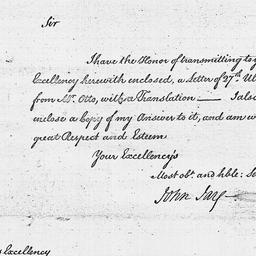 Sir
I have the Honor of transmitting to y
Excellency herewith enclosed, a Letter of 27th. Ul
from Mr. Otto, with a Translation — I also
enclose a Copy of my Answer to it, and am w
great Respect and Esteem
Your Excellency's
Most obt. and hble: Se
John Jay
Excellency